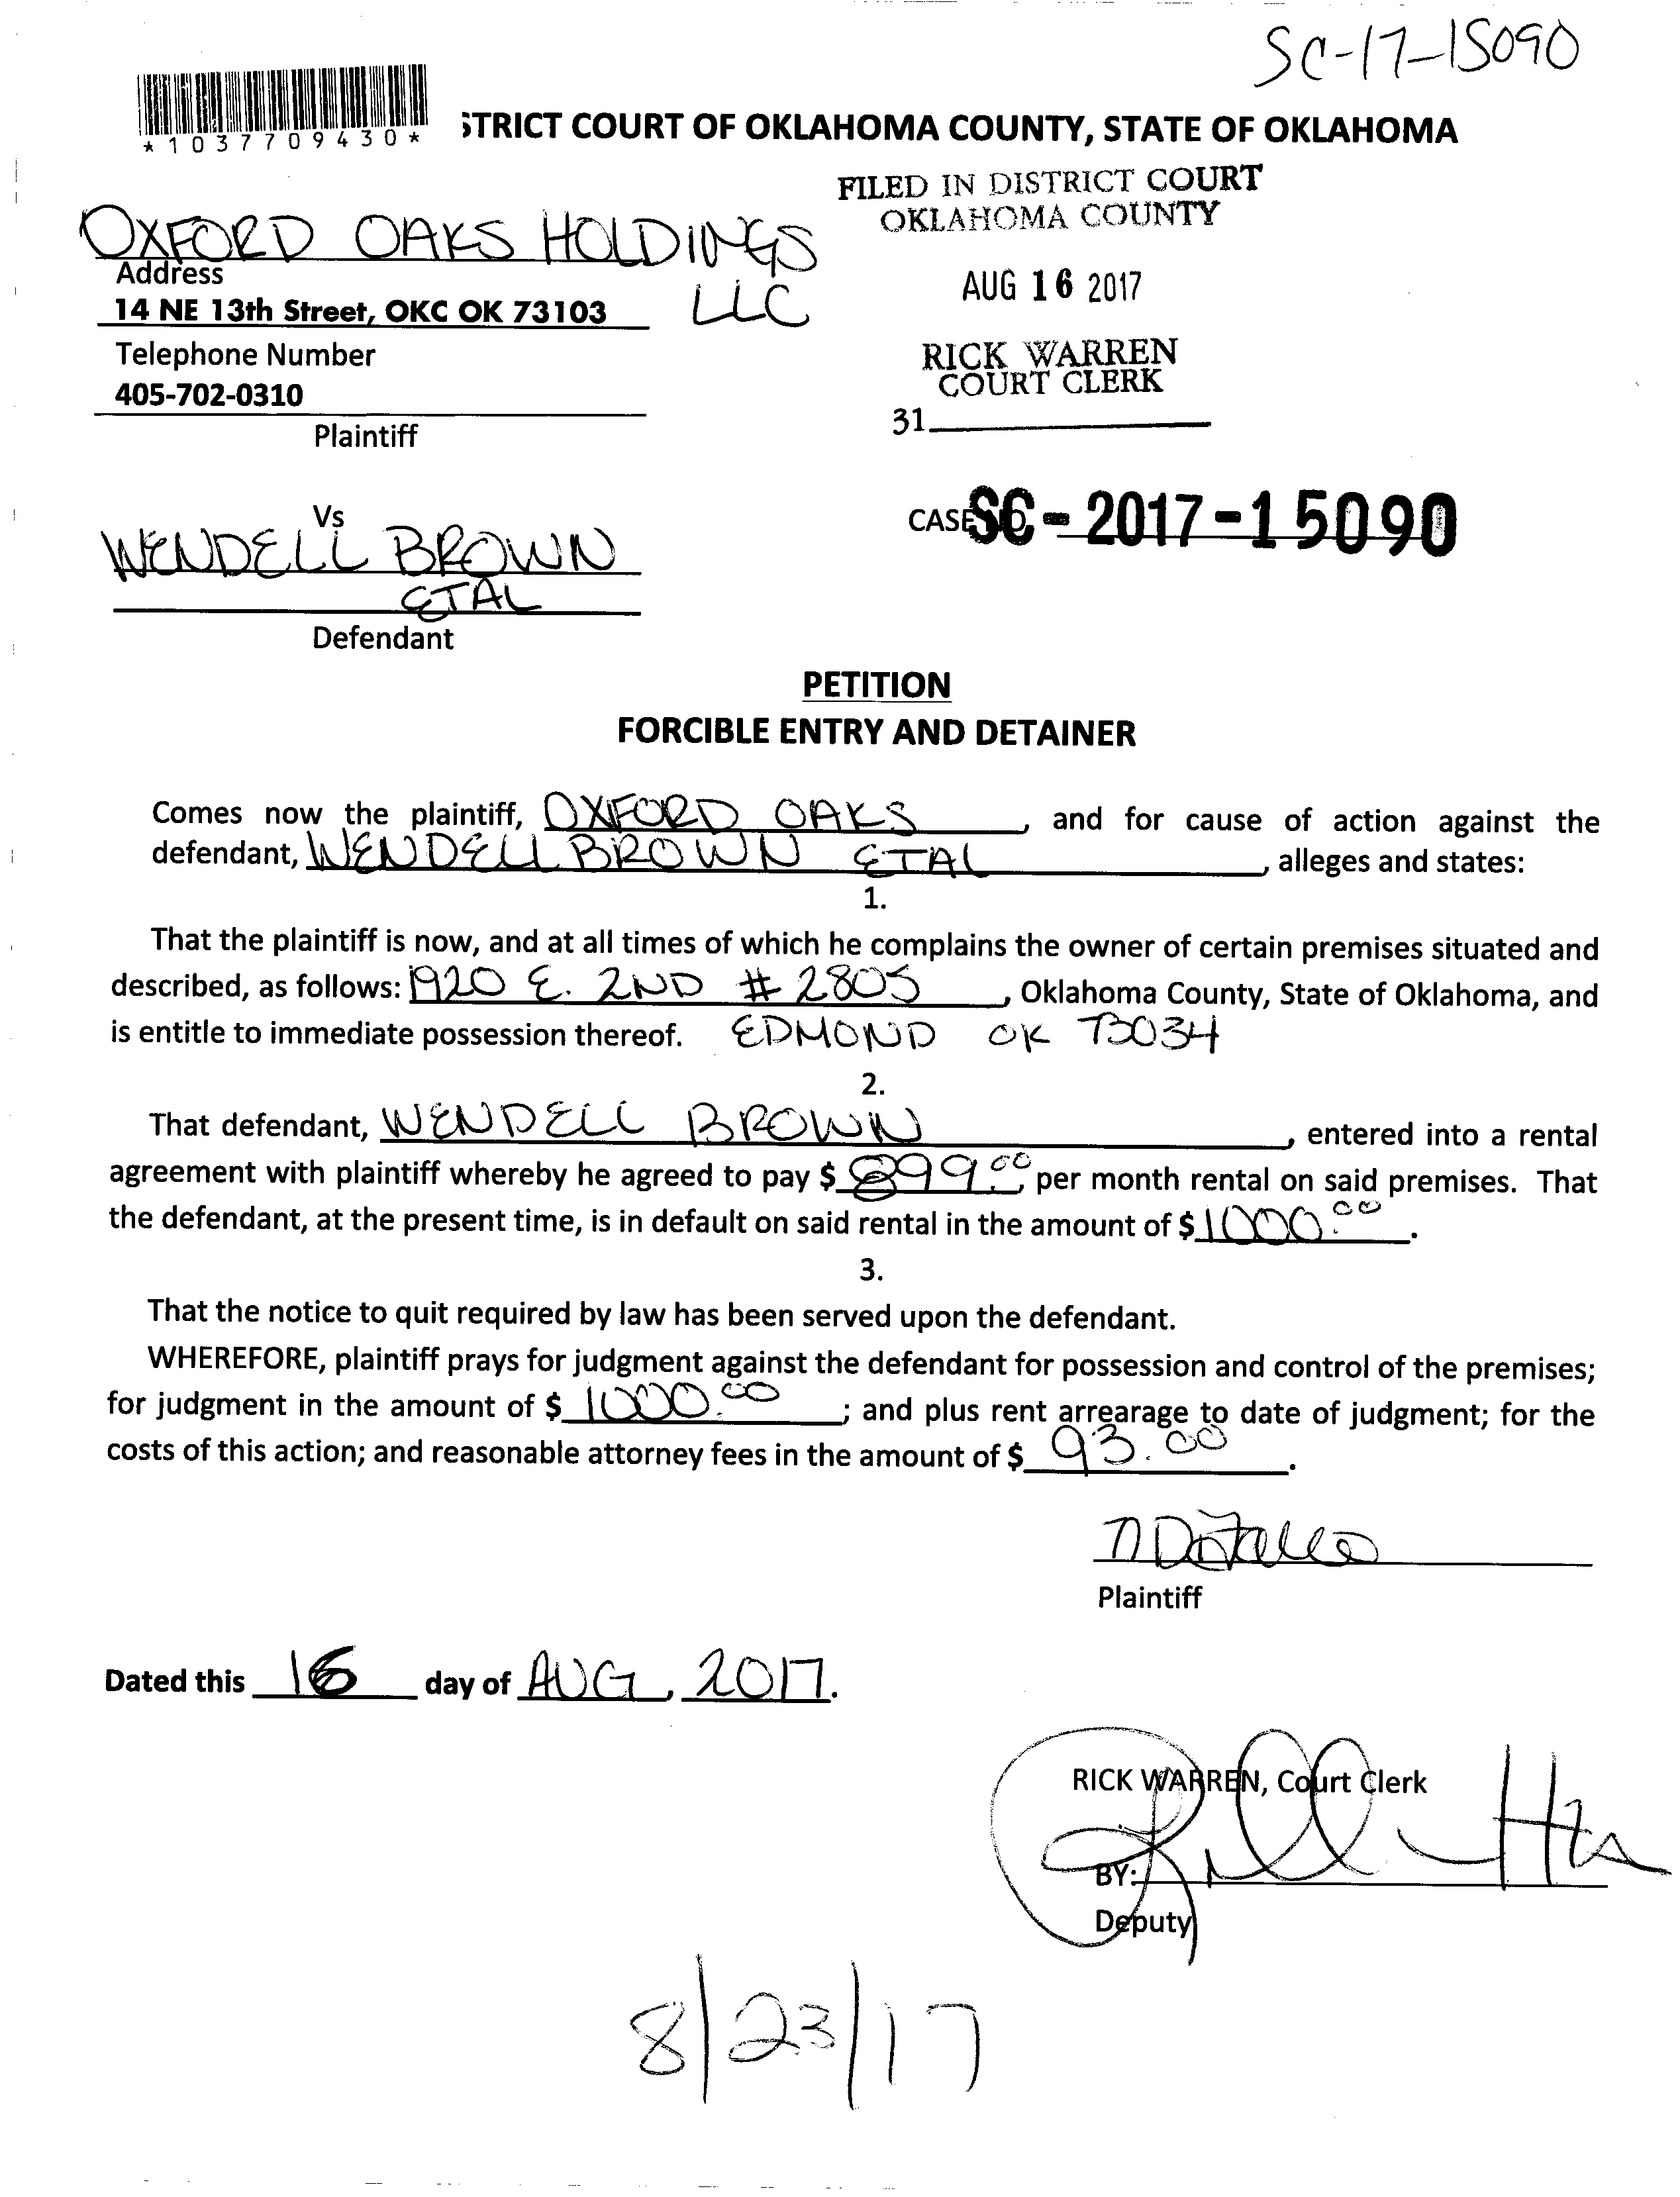 SC-17-15090
*1037709430*
STRICT COURT OF OKLAHOMA COUNTY, STATE OF OKLAHOMA
FILED IN DISTRICT COURT
OKLAHOMA COUNTY
OXFORD OAKS HOLDINGS
LLC
Address
14 NE 13th Street, OKC OK 73103
AUG 16 2017
Telephone Number
405-702-0310
RICK WARREN
COURT CLERK
31
Plaintiff
Vs
WENDELL BROWN
ETAL
Defendant
CASE SC-2017-15090
PETITION
FORCIBLE ENTRY AND DETAINER
Comes now the plaintiff, OXFORD OAKS, and for cause of action against the
defendant, WENDELL BROWN ETAL, alleges and states:
1.
That the plaintiff is now, and at all times of which he complains the owner of certain premises situated and
described, as follows: 1920 E. 2ND # 2805, Oklahoma County, State of Oklahoma, and
is entitle to immediate possession thereof. EDMOND OK 73034
2.
That defendant, WENDELL BROWN, entered into a rental
agreement with plaintiff whereby he agreed to pay $ 899.00 per month rental on said premises. That
the defendant, at the present time, is in default on said rental in the amount of $ 1000.00.
3.
That the notice to quit required by law has been served upon the defendant.
WHEREFORE, plaintiff prays for judgment against the defendant for possession and control of the premises;
for judgment in the amount of $ 1000.00; and plus rent arrearage to date of judgment; for the
costs of this action; and reasonable attorney fees in the amount of $ 93.00.
Plaintiff
Dated this 16 day of AUG, 2017.
RICK WARREN, Court Clerk
BY:
Deputy
8/23/17